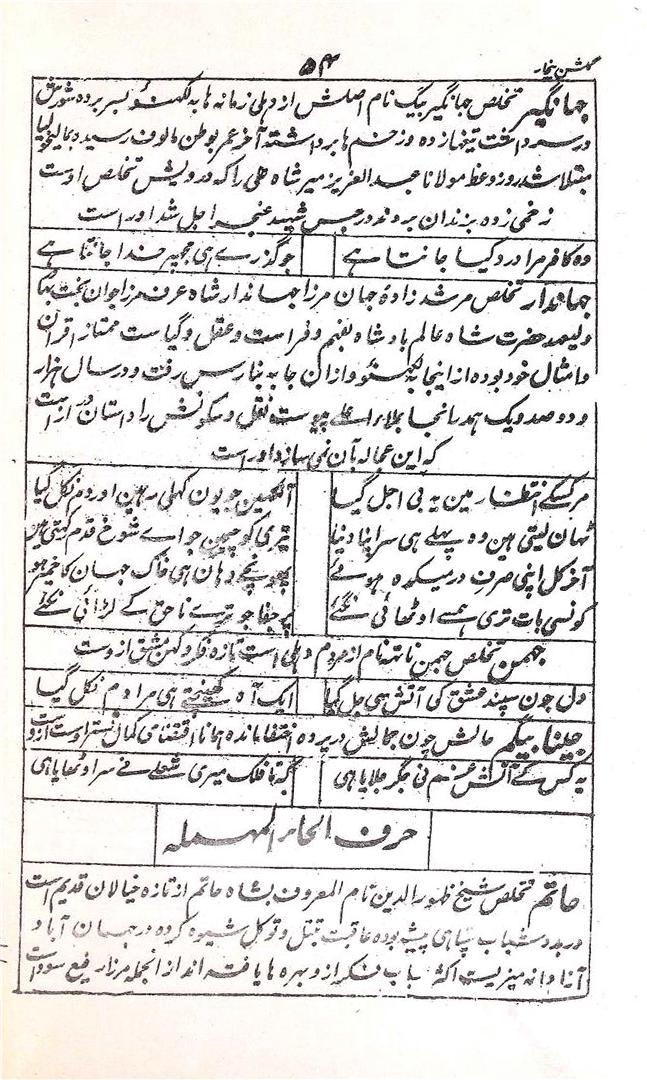 گلشن بیخار
۵۴
جہانگیر تخلص جہانگیر بیگ نام اصلش از دہلی زمانہ ہا بہ لکھنؤ بسر بردہ شورش
در سر داشت تیغہا زدہ و زخم ہا برداشتہ آخر عمر بوطن مالوف رسیدہ بمالیخولیا
مبتلا شد روز وعظ مولانا عبد العزیز میر شاہ علی را کہ درویش تخلص اوست
زخمی زدہ بزندان بردند و در حبس شہید خنجر اجل شد اوراست
وہ کافر مرا درد کیا جانتا ہے
جو گذرے ہی مجھپہ خدا جانتا ہے
جہاندار تخلص مرشد زادۂ جہان مرزا جہاندار شاہ عرف مرزا جوان بخت بہادر
ولیعہد حضرت شاہ عالم بادشاہ بفہم و فراست و عقل و کیاست ممتاز اقران
و امثال خود بودہ از اینجا بہ لکھنؤ و ازان جا بہ بنارس رفت و در سال ہزار
و دو صد و یک ہمدرانجا بملاء اعلی پیوست نقل و سکونتش را داستان دراز است
کہ این عجالہ بآن نمی سازد اوراست
مر کسکے انتظار مین یہ بی اجل گیا
آنکھین جو یون کھلی رہین اور دم نکل گیا
ٹھان لیتی ہین وہ پہلے ہی سر اپنا دینا
تیری کوچہین جو اے شوخ قدم رکھتی ہین
آخر گل اپنی صرف در میکدہ ہوئے
پہونچے وہان ہی خاک جہان کا خمیر ہو
کونسی بات تری ہمسے اوٹھائی نگئے
پر جفا جو ترے ناحق کے لڑائی نگئے
جہمن تخلص جہمن ناتھہ نام از مردم دہلی است تازہ فکر و کہن مشق ازوست
دل جون سپند عشق کی آتش ہی جل گیا
ایک آہ کھینچتے ہی مرا دم نکل گیا
جینا بیگم حالش چون جمالش در پردہ اختفا ماندہ ہمانا اقتضای کمال تستر اوست ازو
یہ کس کے آتش غم نی جگر جلایا ہی
کہ تا فلک میری شعلے نے سر اوٹھایا ہی
حرف الحاء المہملہ
حاتم تخلص شیخ ظہور الدین نام المعروف بشاہ حاتم از تازہ خیالان قدیم است
در بدو شباب سپاہی پیشہ بودہ عاقبت تبتل و توکل شیوہ کردہ در جہان آباد
آزادانہ میزیست اکثر باب فکر از و بہرہ ہا یافتہ اند از انجملہ مرزا رفیع سودا است